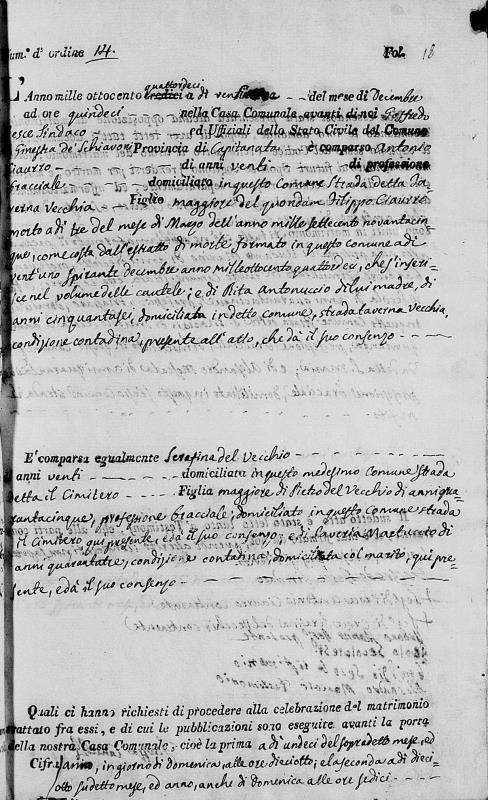 Num.° d'ordine 14. Fol. 18
L'Anno mille ottocento quattordeci a dì ventisette del mese di Decembre
ad ore quindeci nella Casa Comunale avanti di noi Goffredo
Pesce Sindaco ed Uffiziali dello Stato Civile del Comune
Ginestra de' Schiavoni Provincia di Capitanata è comparso Antonio
Ciaurro di anni venti di professione
Bracciale domiciliato in questo Comune Strada detta Ta-
verna Vecchia Figlio maggiore del quondam Filippo Ciaurro
morto a dì tre del mese di Marzo dell'anno mille settecento novantacin-
que, come costa dall'estratto di morte formato in questo Comune a dì
vent'uno spirante decembre anno milleottocento quattordeci, che s'inseri-
sce nel volume delle cautele; e di Rita Antonuccio di lui madre, di
anni cinquantasei, domiciliata in detto comune, strada taverna Vecchia,
condizione contadina, presente all'atto, che dà il suo consenzo
E' comparsa egualmente Serafina del Vecchio
di anni venti domiciliata in questo medesimo Comune Strada
detta il Cimitero Figlia maggiore di Pietro del Vecchio di anni qua-
rantacinque, professione Bracciale, domiciliato in questo Comune strada
il Cimitero qui presente, e dà il suo consenzo; e di Saveria Martuccio di
anni quarantatre, condizione contadina, domiciliata col marito, qui pre-
sente, e dà il suo consenzo
Quali ci hanno richiesti di procedere alla celebrazione del matrimonio
trattato fra essi, e di cui le pubblicazioni sono eseguite avanti la porta
della nostra Casa Comunale, cioè la prima a dì undeci del sopradetto mese, ed
anno, in giorno di domenica, alle ore dieciotto; e la seconda a dì dieci-
otto sudetto mese, ed anno, anche di domenica alle ore sedici